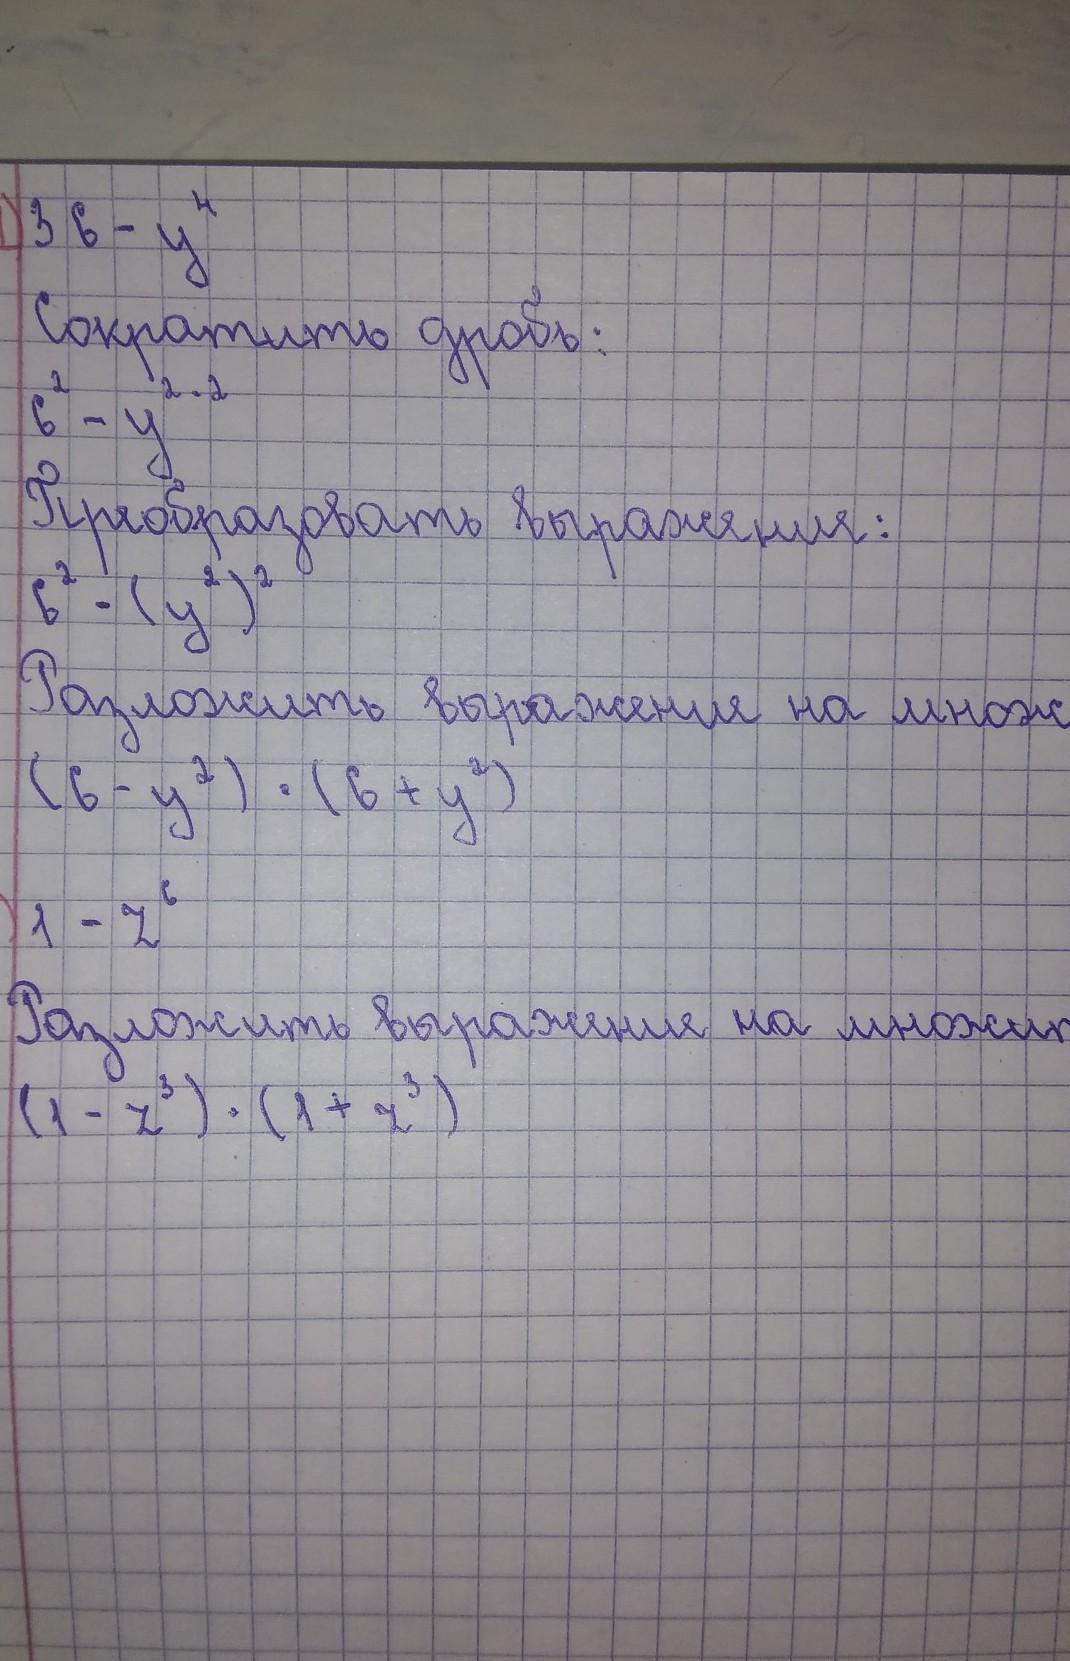 1) 36 - y⁴
Сократить дробь:
6² - y²·²
Преобразовать выражения:
6² - (y²)²
Разложить выражение на множ
(6 - y²) · (6 + y²)
) 1 - z⁶
Разложить выражение на множит
(1 - z³) · (1 + z³)